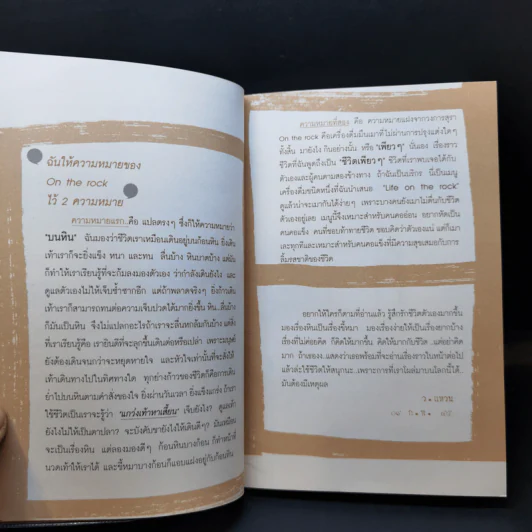 ฉันให้ความหมายของ
On the rock
ไว้ 2 ความหมาย
ความหมายแรก..คือ แปลตรงๆ ซึ่งก็ให้ความหมายว่า
"บนหิน" ฉันมองว่าชีวิตเราเหมือนเดินอยู่บนก้อนหิน ยิ่งเดิน
เท้าเราก็จะยิ่งแข็ง หนา และทน ลื่นบ้าง หินบาดบ้าง แต่มัน
ก็ทำให้เราเรียนรู้ที่จะก้มลงมองตัวเอง ว่ากำลังเดินยังไง และ
ดูแลตัวเองไม่ให้เจ็บซ้ำซากอีก แต่ถ้าพลาดจริงๆ ยิ่งก้าวเดิน
เท้าเราก็สามารถทนต่อความเจ็บปวดได้มากยิ่งขึ้น หิน..ลื่นบ้าง
ก็มันเป็นหิน จึงไม่แปลกอะไรถ้าเราจะลื่นหกล้มกันบ้าง แต่สิ่ง
ที่เราเรียนรู้คือ เรายินดีที่จะลุกขึ้นเดินต่อหรือเปล่า เพราะมนุษย์
ยังต้องเดินจนกว่าจะหยุดหายใจ และหัวใจเท่านั้นที่จะสั่งให้
เท้าเดินทางไปในทิศทางใด ทุกย่างก้าวของชีวิตก็คือการเดิน
ย่ำไปบนหินตามคำสั่งของใจ ยิ่งผ่านวันเวลา ยิ่งแข็งแกร่ง ถ้าเรา
ใช้ชีวิตเป็นเราจะรู้ว่า เจ็บยังไง? ดูแลเท้า
ยังไงไม่ให้เป็นตาปลา? จะบังคับขายังไงให้เดินดีๆ? มันเหมือน
จะเป็นเรื่องหิน แต่ลองมองดีๆ ก้อนหินบางก้อน ก็ทำหน้าที่
นวดเท้าให้เราได้ และขี้หมาบางก้อนก็แอบแฝงอยู่กับก้อนหิน
ความหมายที่สอง คือ ความหมายแฝงจากวงการสุรา
On the rock คือเครื่องดื่มมึนเมาที่ไม่ผ่านการปรุงแต่งใดๆ
ทั้งสิ้น มายังไง กินอย่างนั้น หรือ "เพียวๆ" นั่นเอง เรื่องราว
ชีวิตที่ฉันพูดถึงเป็น "ชีวิตเพียวๆ" ชีวิตที่เราพบเจอได้กับ
ตัวเองและผู้คนตามสองข้างทาง ถ้าฉันเป็นบริกร นี่เป็นเมนู
เครื่องดื่มชนิดหนึ่งที่ฉันนำเสนอ "Life on the rock"
ดูแล้วน่าจะเมากันได้ง่ายๆ เพราะบางคนยังเมาไม่ตื่นกับชีวิต
ตัวเองอยู่เลย เมนูนี้จึงเหมาะสำหรับคนคออ่อน อยากหัดเป็น
คนคอแข็ง คนที่ชอบท้าทายชีวิต ชอบคิดว่าตัวเองแน่ แต่ก็เมา
และทุกทีและเหมาะสำหรับคนคอแข็งที่มีความสุขเสมอกับการ
ลิ้มรสชาติของชีวิต
อยากให้ใครก็ตามที่อ่านแล้ว รู้สึกรักชีวิตตัวเองมากขึ้น
มองเรื่องหินเป็นเรื่องขี้หมา มองเรื่องง่ายให้เป็นเรื่องยากบ้าง
เรื่องที่ไม่ค่อยคิด ก็คิดให้มากขึ้น คิดให้มากกับชีวิต ..แต่อย่าคิด
มาก ถ้าเธอลง..แสดงว่าเธอพร้อมที่จะอ่านเรื่องราวในหน้าต่อไป
แล้วล่ะ ใช้ชีวิตให้สนุกนะ..เพราะการที่เราโผล่มาบนโลกนี้ได้..
มันต้องมีเหตุผล
ว • แหวน